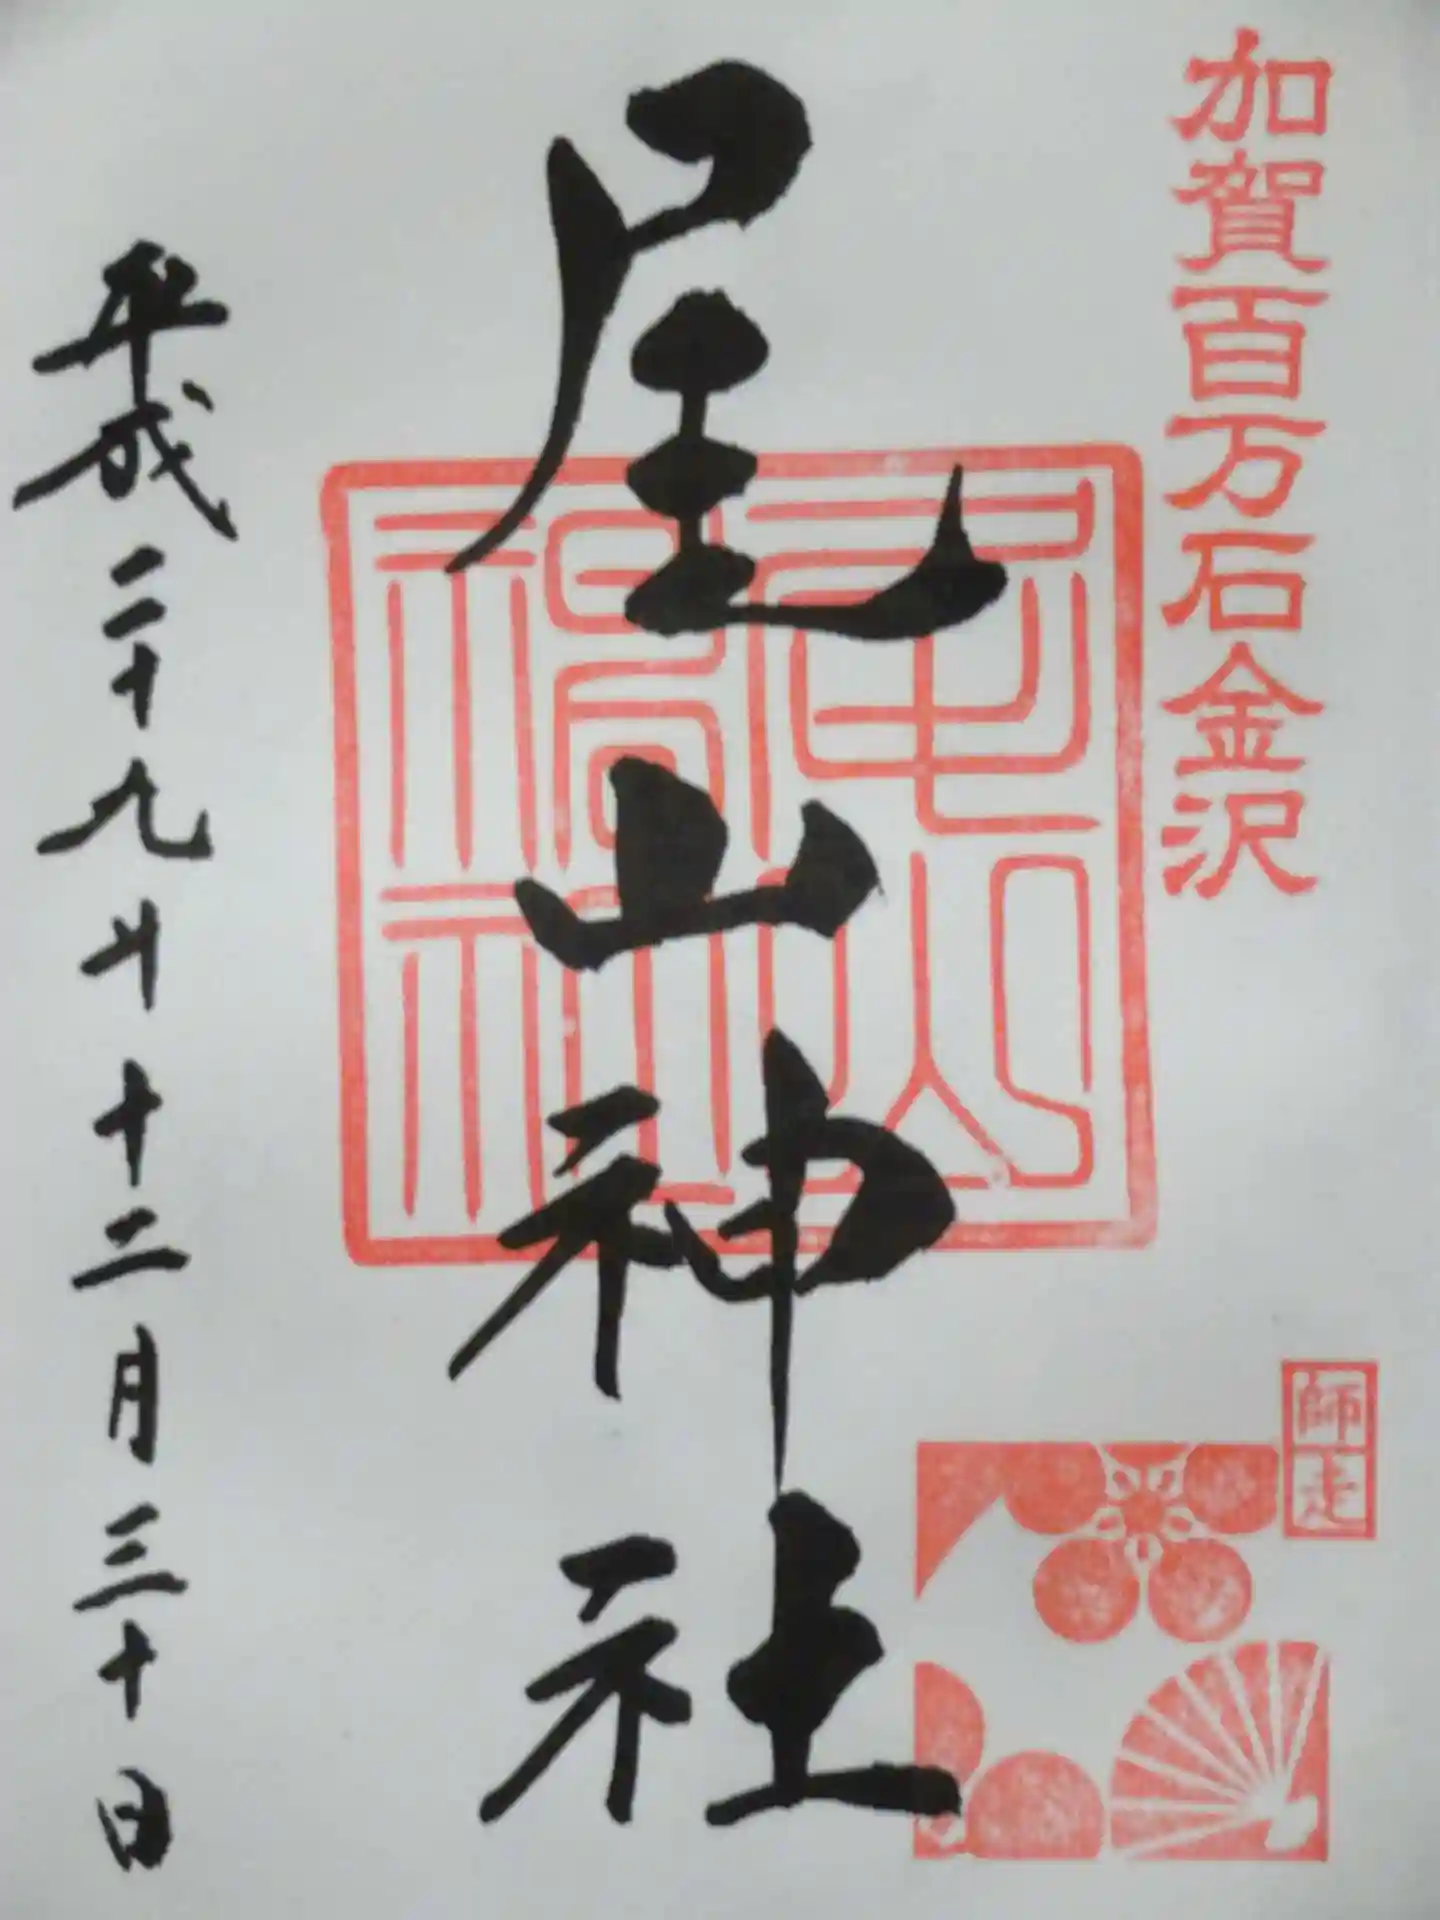 加賀百万石金沢
師走
尾山神社
尾山神社
平成二十九年十二月三十日